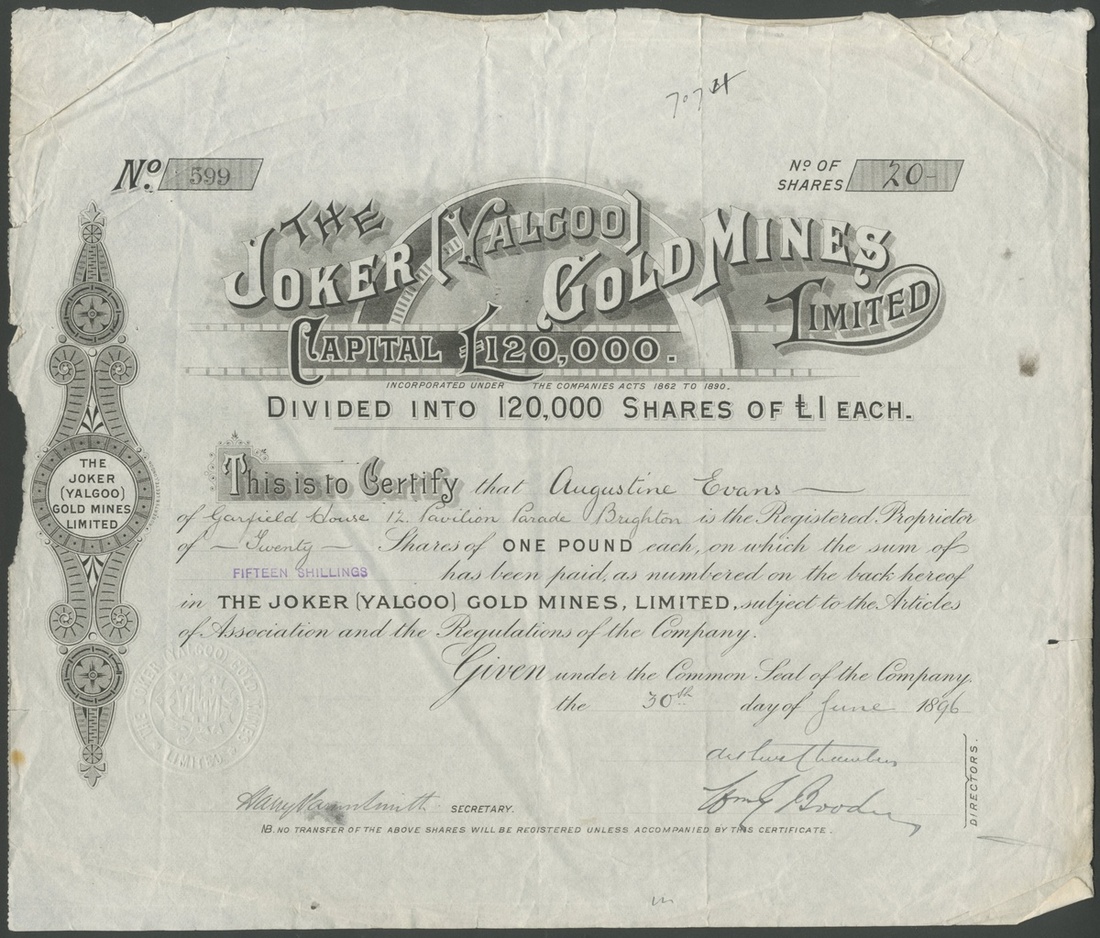 7074
No. 599
No OF SHARES 20-
THE
JOKER (YALGOO) GOLD MINES
LIMITED
CAPITAL £120,000.
INCORPORATED UNDER THE COMPANIES ACTS 1862 TO 1890.
DIVIDED INTO 120,000 SHARES OF £1 EACH.
THE
JOKER
(YALGOO)
GOLD MINES
LIMITED
This is to Certify that Augustine Evans
of Garfield House 12. Pavilion Parade Brighton is the Registered Proprietor
of — Twenty — Shares of ONE POUND each, on which the sum of
FIFTEEN SHILLINGS has been paid, as numbered on the back hereof
in THE JOKER (YALGOO) GOLD MINES, LIMITED, subject to the Articles
of Association and the Regulations of the Company.
Given under the Common Seal of the Company.
the 30th day of June 1896
THE JOKER (YALGOO) GOLD MINES LIMITED
DIRECTORS.
Harry SECRETARY.
NB. NO TRANSFER OF THE ABOVE SHARES WILL BE REGISTERED UNLESS ACCOMPANIED BY THIS CERTIFICATE.